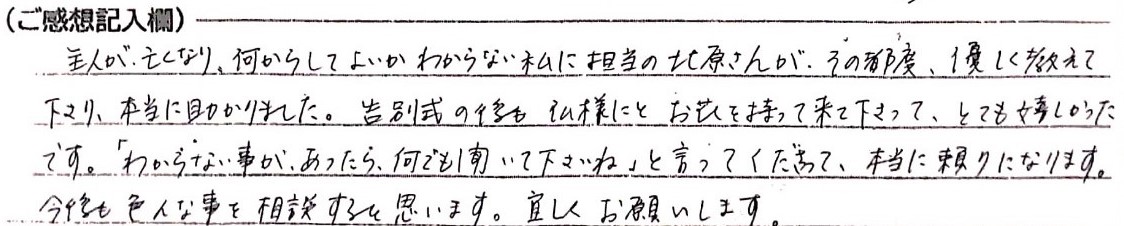 (ご感想記入欄)
主人が、亡くなり、何からしてよいかわからない私に担当の北原さんが、その都度、優しく教えて
下さり、本当に助かりました。告別式の後も仏様にとお花を持って来て下さって、とても嬉しかった
です。「わからない事が、あったら、何でも聞いて下さいね」と言ってくださって、本当に頼りになります。
今後も色々な事を相談すると思います。宜しくお願いします。